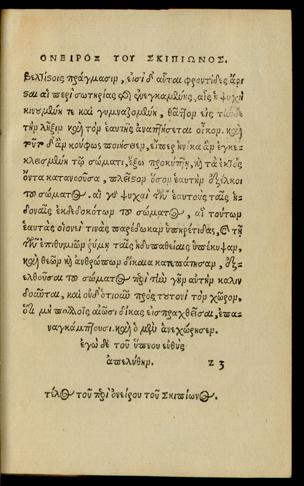 ΟΝΕΙΡΟΣ ΤΟΥ ΣΚΙΠΙΩΝΟΣ.
βελτίσοις πράγμασιν, εἰσὶ δ' αὗται φροντίδες ἄρι
σαι αἱ περὶ σωτηρίας
κινουμένη τε καὶ γυμναζομένη, θᾶττον εἰς τήνδε
τὴν λῆξιν καὶ τὸν ἑαυτῆς ἀναπτήσεται οἶκον. καὶ
τοῦτο δ' ἂν κούφως ποιήσειεν, εἴπερ ἡνίκα ἂν ἐγκε-
κλεισμένη τῷ σώματι, ἔξω προκύπτῃ, καὶ τὰ ἐκτὸς
ὄντα κατανοοῦσα, πλεῖστον ὅσον ἑαυτὴν ἐξέλκοι
τοῦ σώματος. αἱ γὰρ ψυχαὶ τῶν ἑαυτοὺς ταῖς ἡ-
δοναῖς ἐκδεδοκότων τοῦ σώματος, αἳ τούτων
ἑαυτὰς οἱονεί τινας παρέδωκαν ὑπηρέτιδας, καὶ τῇ
τῶν ἐπιθυμιῶν ῥύμῃ ταῖς ἡδυπαθείαις ὑπέκυψαν,
καὶ θεῶν καὶ ἀνθρώπων δίκαια κατεπάτησαν, ἐξ-
ελθοῦσαι τοῦ σώματος περὶ τὴν γῆν αὐτὴν καλιν
δοῦνται, καὶ οὐδ' ὁτιοῦν πρὸς τουτονὶ τὸν χῶρον,
ὅτι μὴ πολλοῖς αἰῶσι δίκας εἰσπραχθεῖσαι, ἐπα-
ναγκάμπτουσι. καὶ ὁ μὲν ἀνεχώρησεν.
ἐγὼ δὲ τοῦ ὕπνου εὐθὺς
ἀπελύθην. z 3
τέλος τοῦ περὶ ὀνείρου τοῦ Σκιπίωνος.